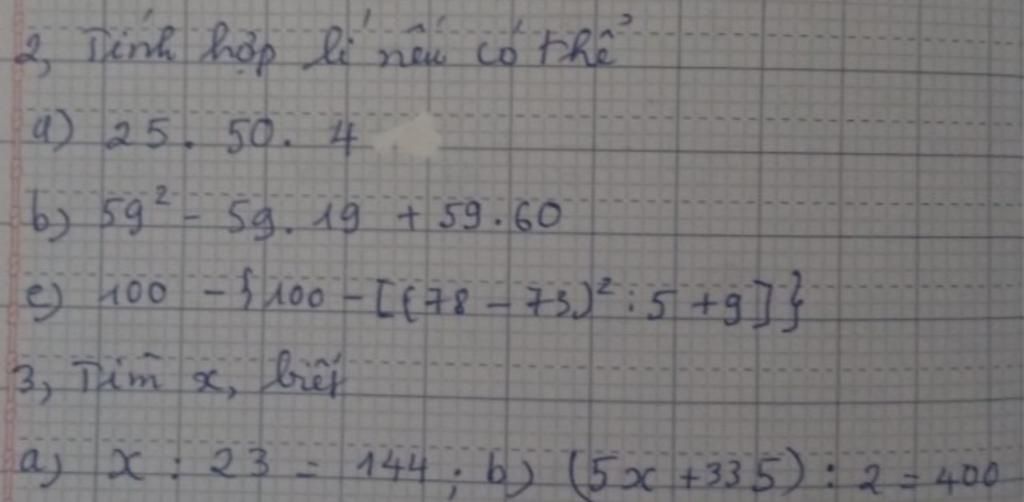 2, Tính hợp lí nếu có thể
a) 25. 50. 4
b) 59² - 59. 19 + 59.60
c) 100 - {100 - [(78 - 73)² : 5 + 9]}
3, Tìm x, biết
a) x : 23 = 144 ; b) (5x + 335) : 2 = 400